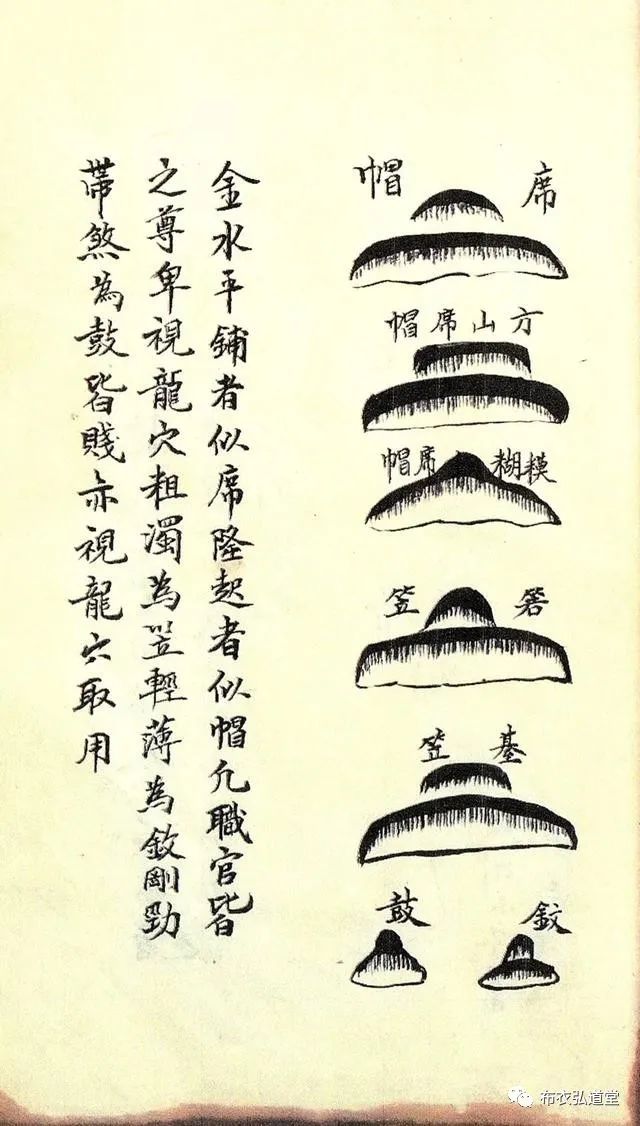 席帽
方山席帽
糢糊席帽
箬笠
基笠
鈸
鼓
金水平鋪者似席隆起者似帽凢職官皆
之尊卑視龍穴粗濁為笠輕薄為鈸剛勁
帶煞為鼓皆賤亦視龍穴取用
布衣弘道堂